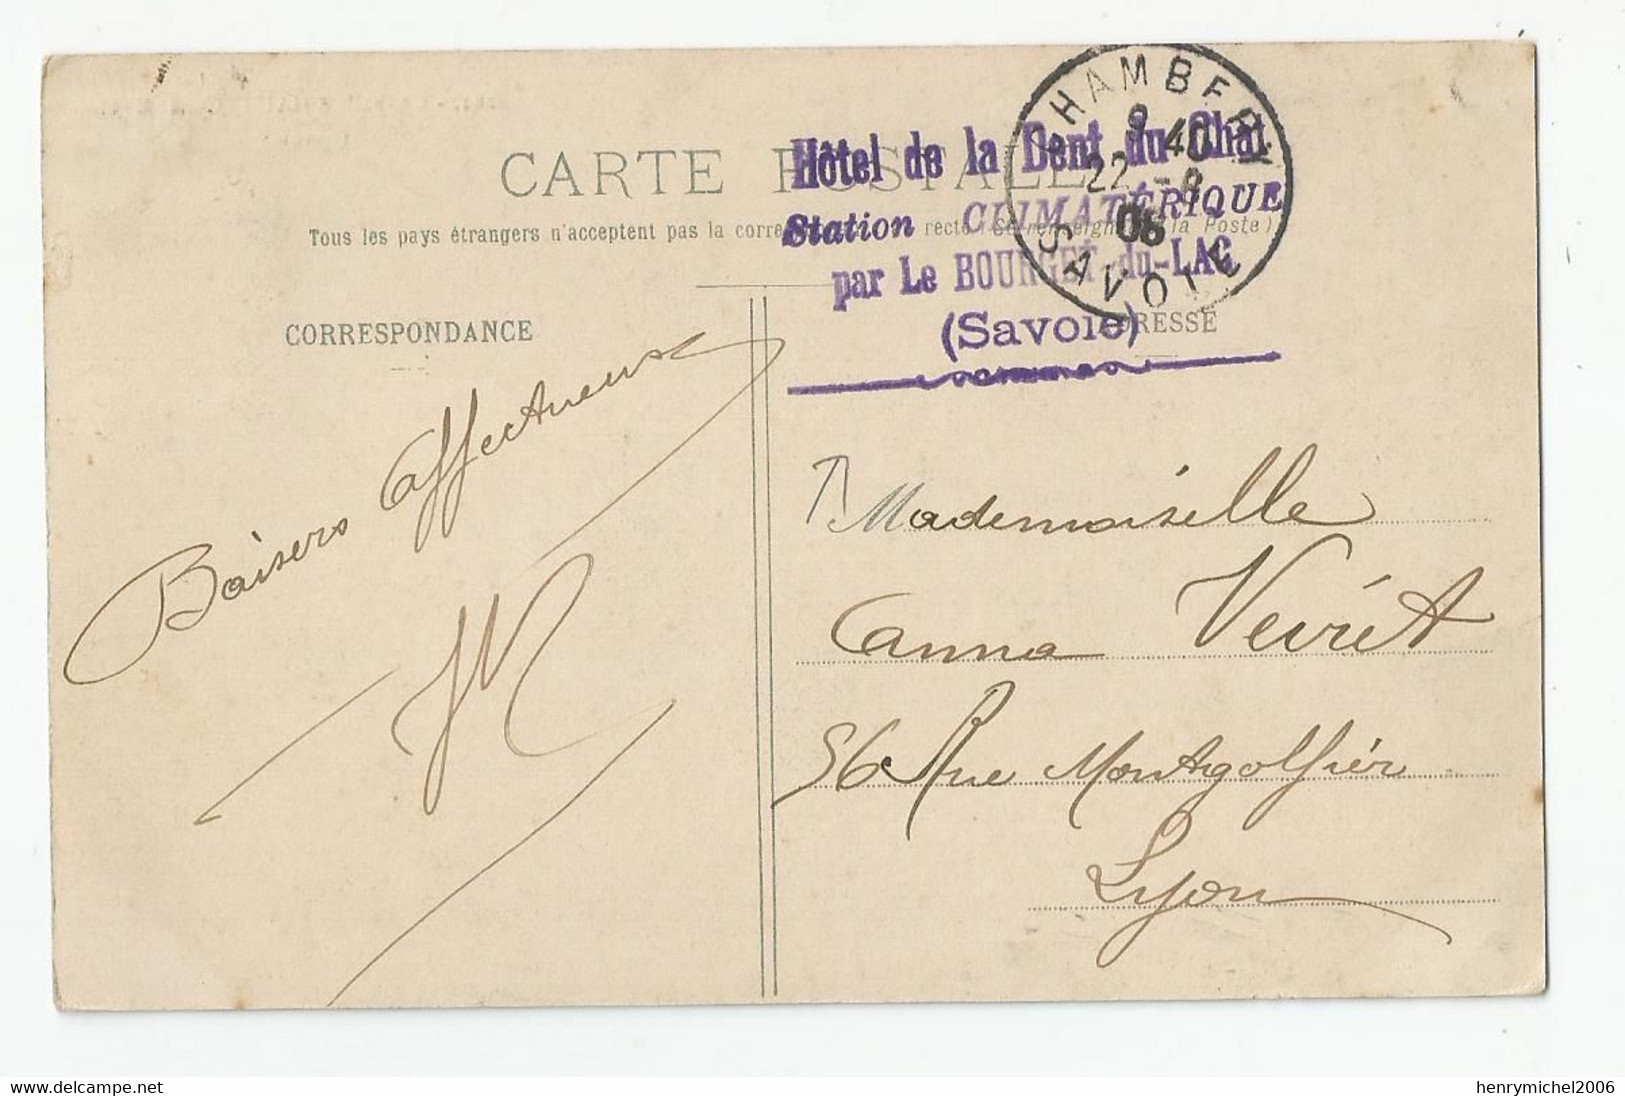 CARTE POSTALE
Tous les pays étrangers n'acceptent pas la corre recto (Se renseigner à la Poste)
Hôtel de la Dent du Chat
Station CLIMATÉRIQUE
par Le BOURGET-du-LAC
(Savoie)
CHAMBERY
9 40
22 - 8
06
SAVOIE
CORRESPONDANCE
ADRESSE
Baisers affectueux
Mademoiselle
Anna Vevrét
56 Rue Montgolfier
Lyon
www.delcampe.net
henrymichel2006